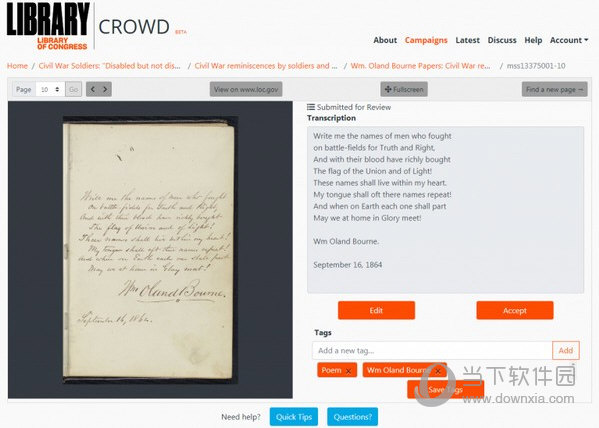 LIBRARY
LIBRARY
OF CONGRESS
CROWD BETA
About Campaigns Latest Discuss Help Account
Home / Civil War Soldiers: "Disabled but not dis... / Civil War reminiscences by soldiers and ... / Wm. Oland Bourne Papers: Civil War re... / mss13375001-10
Page 10 Go View on www.loc.gov Fullscreen Find a new page →
Write me the names of men who fought
On battle fields for Truth and Right,
And with their blood have richly bought
The flag of Union and of Light!
These names shall live within my heart!
My tongue shall oft their names repeat!
And when on Earth each one shall part
May we at home in Glory meet!
Wm Oland Bourne.
September 16, 1864.
Submitted for Review
Transcription
Write me the names of men who fought
on battle-fields for Truth and Right,
And with their blood have richly bought
The flag of the Union and of Light!
These names shall live within my heart.
My tongue shall oft there names repeat!
And when on Earth each one shall part
May we at home in Glory meet!
Wm Oland Bourne.
September 16, 1864
Edit Accept
Tags
Add a new tag... Add
Poem x Wm Oland Bourne x
Save Tags
当下软件园
www.downxia.com
Need help? Quick Tips Questions?